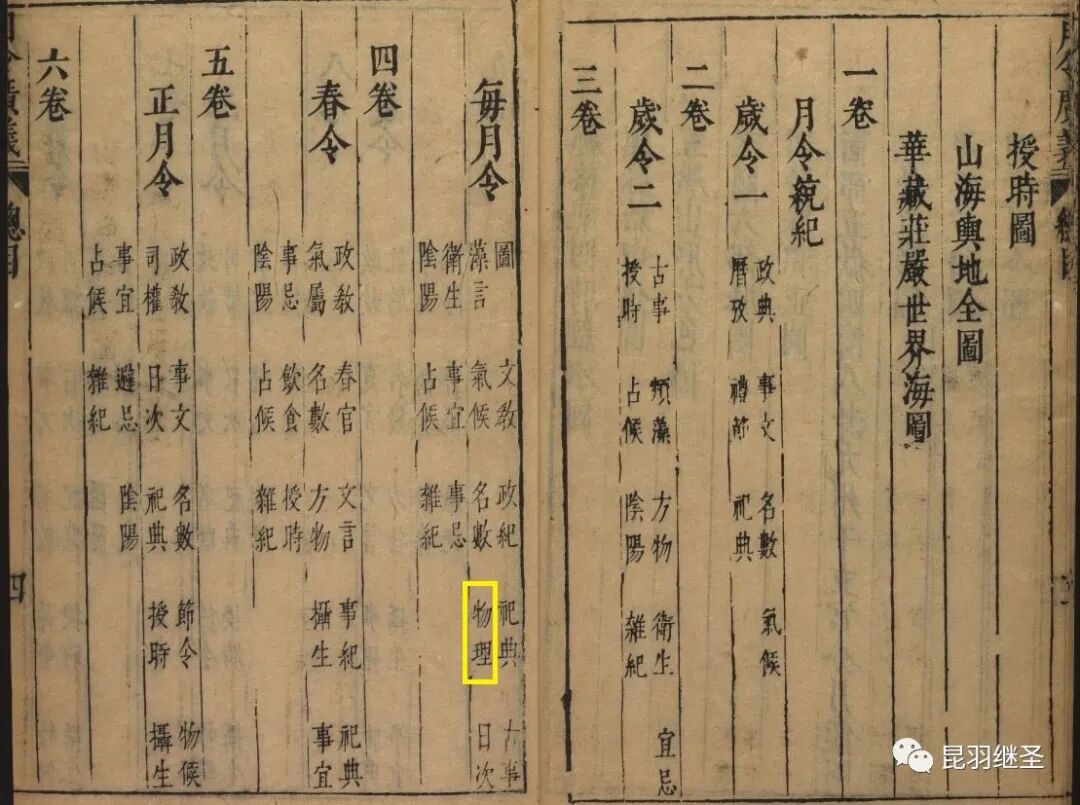 月令廣義 總目
授時圖
山海輿地全圖
華藏莊嚴世界海圖
一卷
月令統紀
歲令一 政典 事文 名數 氣候
曆攷 禮節 祀典
二卷
歲令二 古事 類藻 方物 衛生 宜忌
授時 占候 陰陽 雜紀
三卷
每月令 圖 文教 政紀 祀典 事
藻言 氣候 名數 物理 日次
衛生 事宜 事忌
陰陽 占候 雜紀
四卷
春令 政教 春官 文言 事紀 祀典
氣屬 名數 方物 攝生 事宜
事忌 飲食 授時
陰陽 占候 雜紀
五卷
正月令 政教 事文 名數 節令 物候
司權 日次 祀典 授時 攝生
事宜 避忌 陰陽
占候 雜紀
六卷
月令廣義 總目 四
昆羽继圣